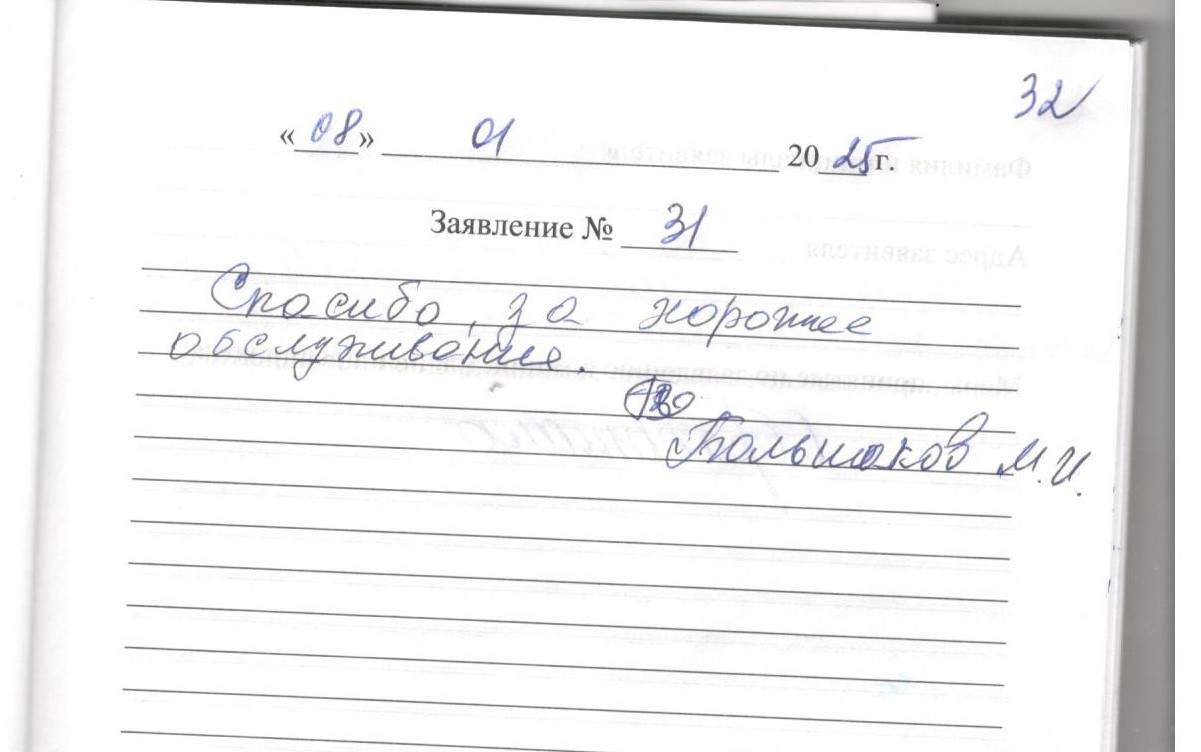 32
« 08 » 01 20 25 г.
Заявление № 31
Спасибо, за хорошее
обслуживание.
Большаков М.И.